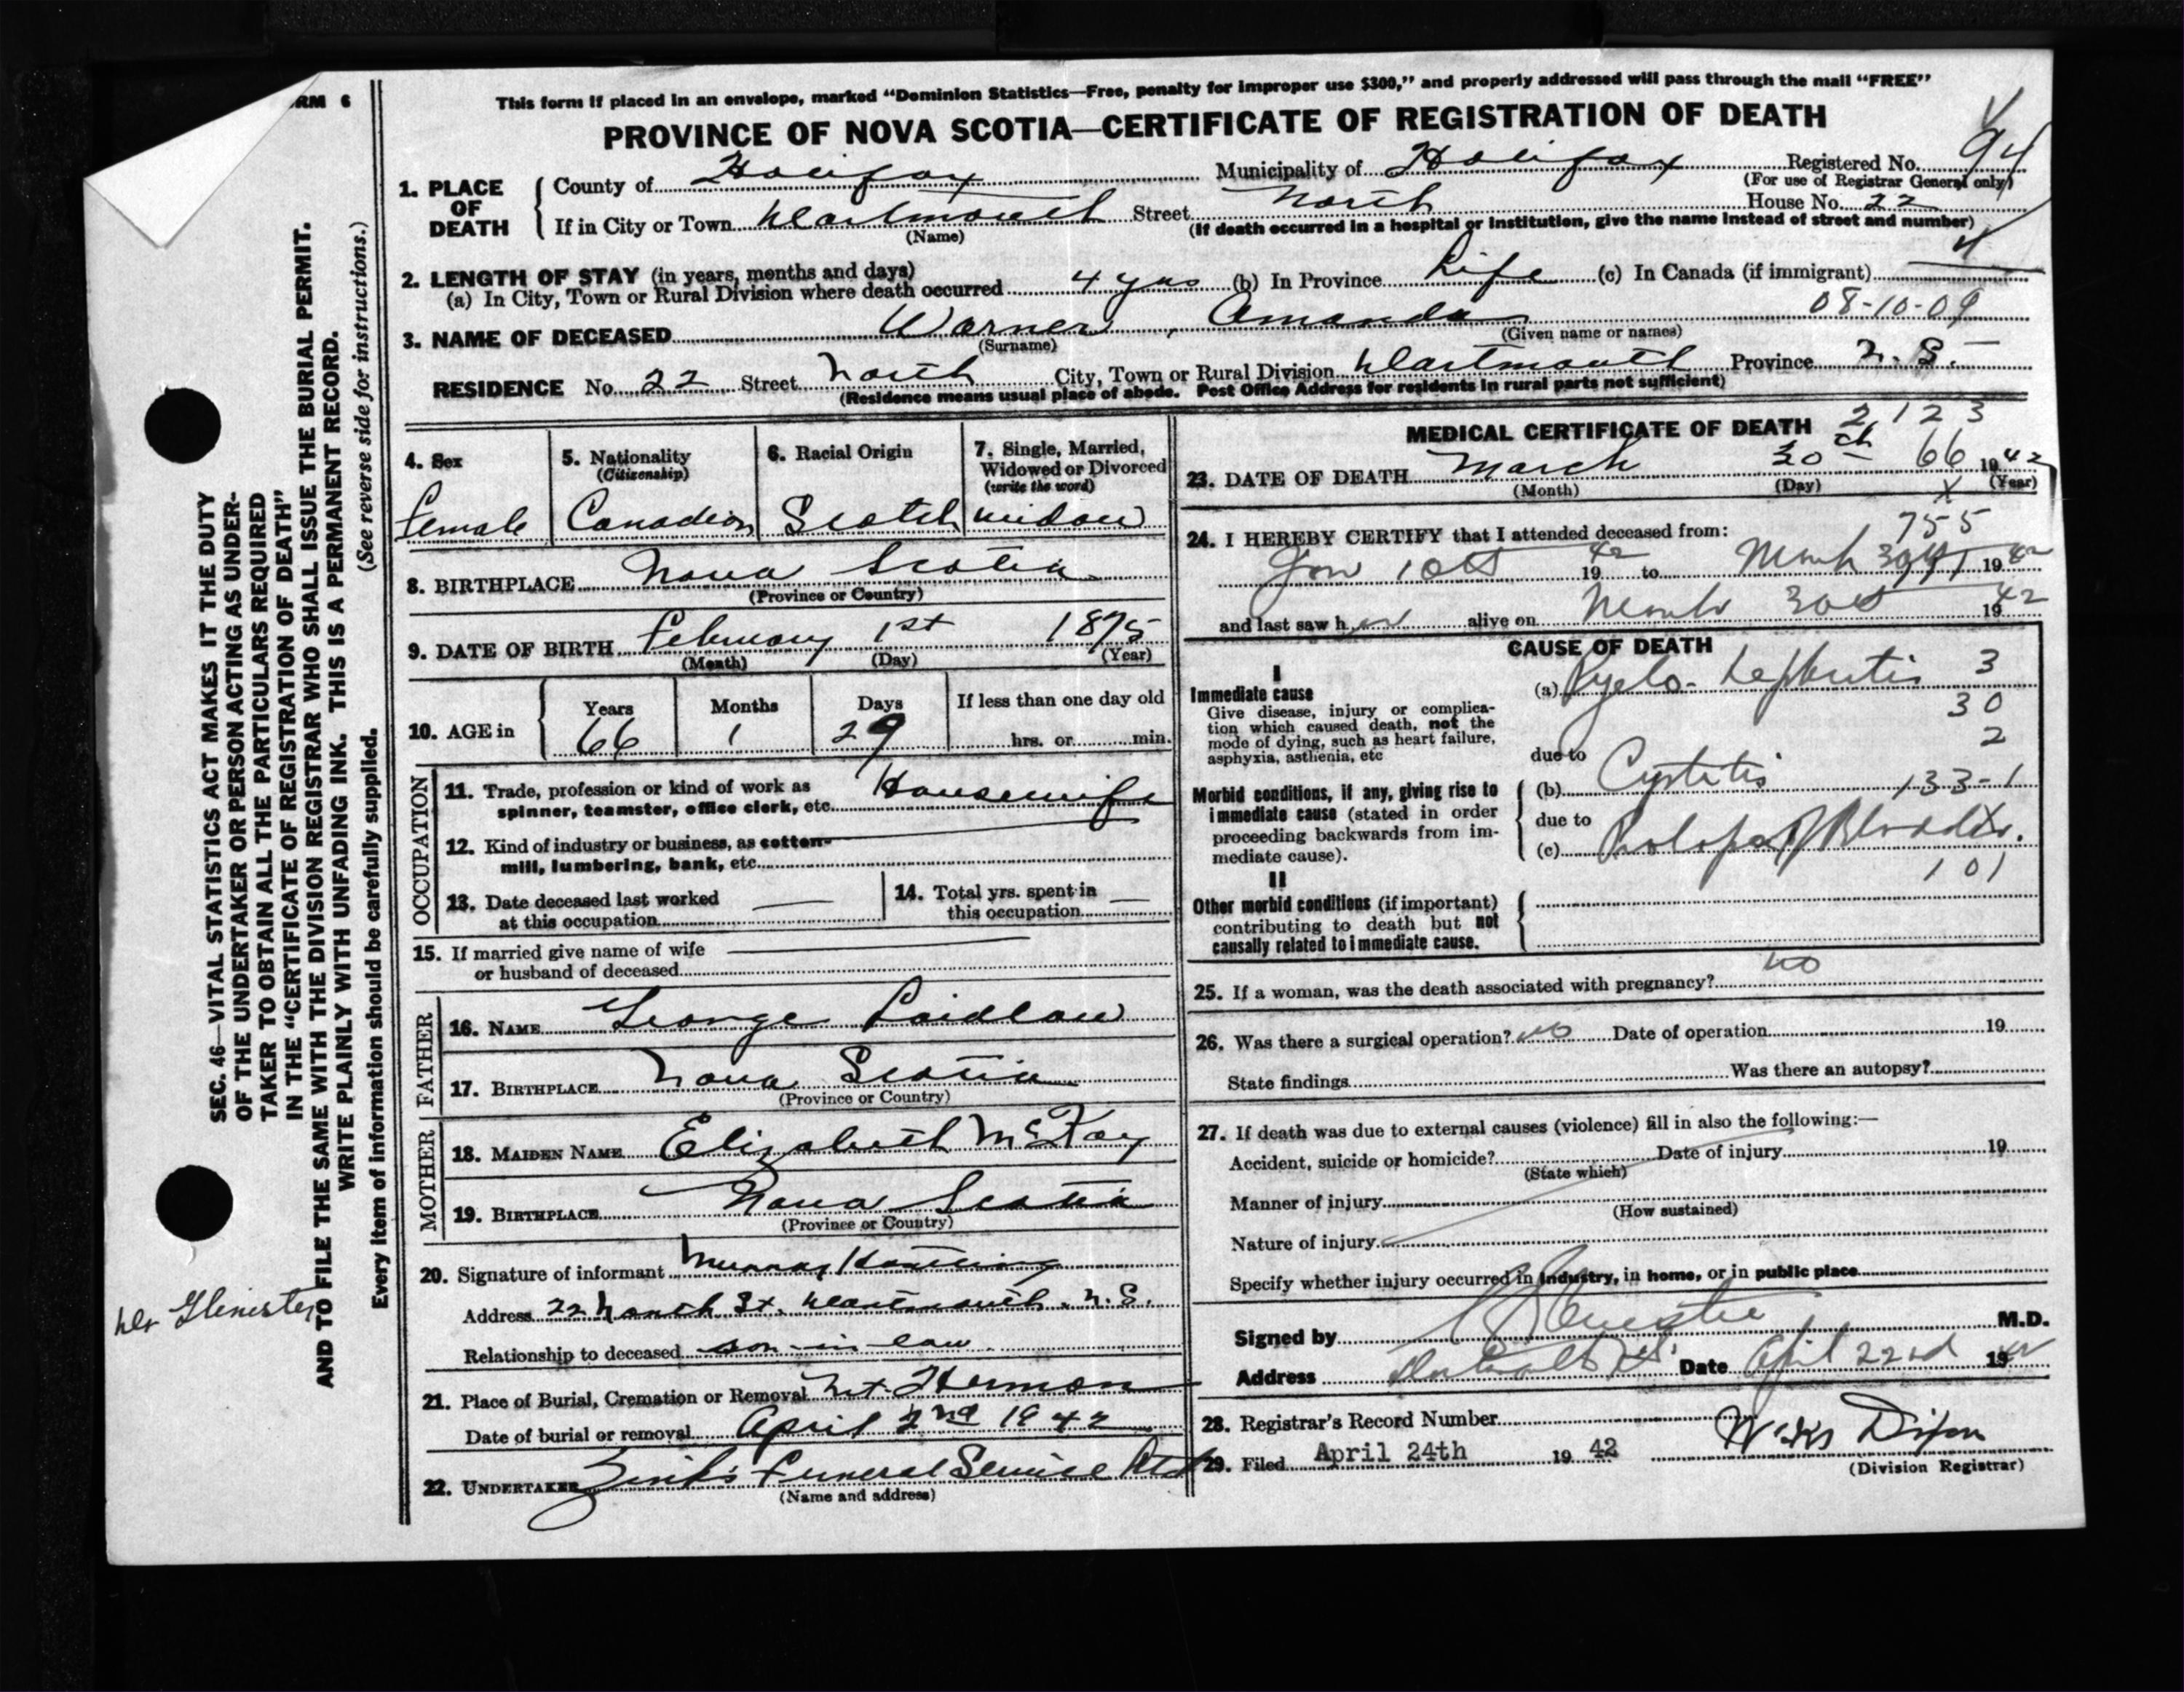 FORM 6
This form if placed in an envelope, marked “Dominion Statistics—Free, penalty for improper use $300,” and properly addressed will pass through the mail “FREE”
PROVINCE OF NOVA SCOTIA—CERTIFICATE OF REGISTRATION OF DEATH
1. PLACE OF DEATH
County of Halifax Municipality of Halifax Registered No. 94
(For use of Registrar General only)
If in City or Town Dartmouth Street North House No. 22
(Name) (If death occurred in a hospital or institution, give the name instead of street and number)
4
2. LENGTH OF STAY (in years, months and days)
(a) In City, Town or Rural Division where death occurred 4 yrs (b) In Province Life (c) In Canada (if immigrant)
08-10-09
3. NAME OF DECEASED Warner, Amanda
(Surname) (Given name or names)
RESIDENCE No. 22 Street North City, Town or Rural Division Dartmouth Province N. S.
(Residence means usual place of abode. Post Office Address for residents in rural parts not sufficient)
4. Sex
Female
5. Nationality
(Citizenship)
Canadian
6. Racial Origin
Scotch
7. Single, Married,
Widowed or Divorced
(write the word)
widow
8. BIRTHPLACE Nova Scotia
(Province or Country)
9. DATE OF BIRTH February 1st 1875
(Month) (Day) (Year)
10. AGE in
Years Months Days If less than one day old
66 1 29 hrs. or min.
OCCUPATION
11. Trade, profession or kind of work as
spinner, teamster, office clerk, etc. Housewife
12. Kind of industry or business, as cotten-
mill, lumbering, bank, etc.
13. Date deceased last worked
at this occupation —
14. Total yrs. spent in
this occupation —
15. If married give name of wife
or husband of deceased
FATHER
16. NAME George Laidlaw
17. BIRTHPLACE Nova Scotia
(Province or Country)
MOTHER
18. MAIDEN NAME Elizabeth McKay
19. BIRTHPLACE Nova Scotia
(Province or Country)
20. Signature of informant Murray
Address 22 North St. Dartmouth. N. S.
Relationship to deceased son-in-law
21. Place of Burial, Cremation or Removal Mt. Hermon
Date of burial or removal April 2nd 1942
22. UNDERTAKER Zink's Funeral Service Ltd
(Name and address)
MEDICAL CERTIFICATE OF DEATH 2123
23. DATE OF DEATH March 30th 66 1942
(Month) (Day) (Year)
X
24. I HEREBY CERTIFY that I attended deceased from:
755
Jan 10th 1942 to March 30th 1942
and last saw her alive on March 30th 1942
CAUSE OF DEATH
I
Immediate cause
Give disease, injury or complica-
tion which caused death, not the
mode of dying, such as heart failure,
asphyxia, asthenia, etc
(a) Pyelo-Nephritis 3
30
2
due to
Morbid conditions, if any, giving rise to
immediate cause (stated in order
proceeding backwards from im-
mediate cause).
(b) Cystitis 133-1
due to
(c) Prolapse of Bladder.
101
II
Other morbid conditions (if important)
contributing to death but not
causally related to immediate cause.
25. If a woman, was the death associated with pregnancy? no
26. Was there a surgical operation? no Date of operation 19
State findings Was there an autopsy?
27. If death was due to external causes (violence) fill in also the following:—
Accident, suicide or homicide? Date of injury 19
(State which)
Manner of injury
(How sustained)
Nature of injury
Specify whether injury occurred in industry, in home, or in public place
Signed by M.D.
Address Date April 22nd 1942
28. Registrar's Record Number
29. Filed April 24th 1942 Dixon
(Division Registrar)
SEC. 46—VITAL STATISTICS ACT MAKES IT THE DUTY
OF THE UNDERTAKER OR PERSON ACTING AS UNDER-
TAKER TO OBTAIN ALL THE PARTICULARS REQUIRED
IN THE “CERTIFICATE OF REGISTRATION OF DEATH”
AND TO FILE THE SAME WITH THE DIVISION REGISTRAR WHO SHALL ISSUE THE BURIAL PERMIT.
WRITE PLAINLY WITH UNFADING INK. THIS IS A PERMANENT RECORD.
(See reverse side for instructions.)
Every item of information should be carefully supplied.
Dr Glenister